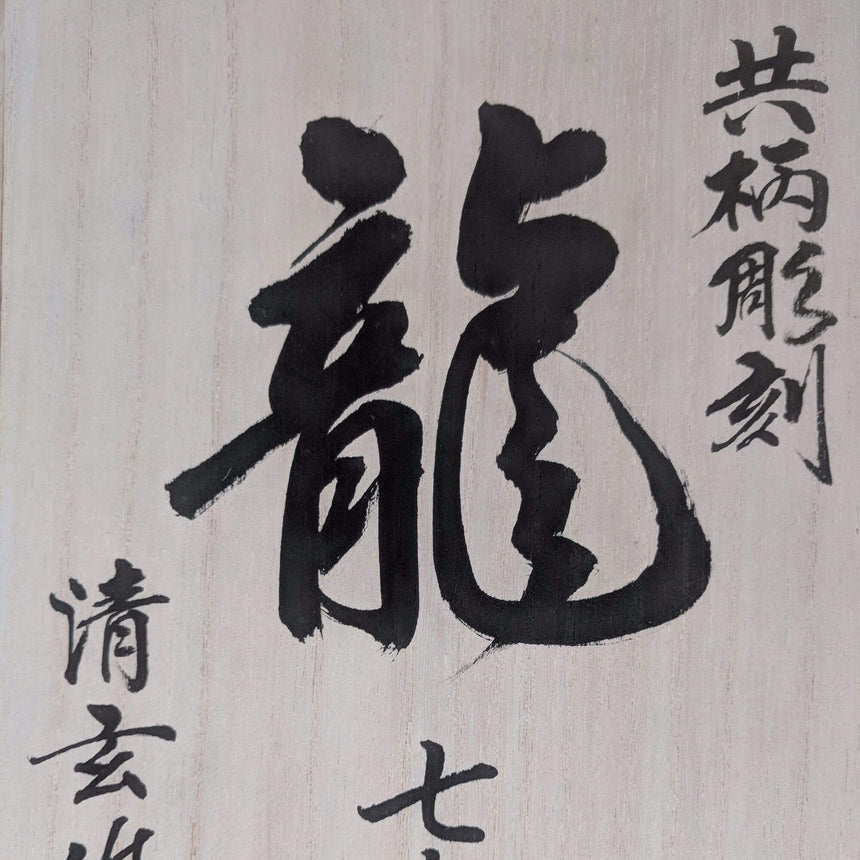 共柄彫刻
龍
七
清玄